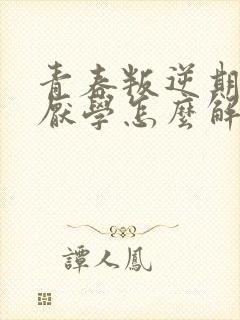 青春叛逆期
厭學怎麼解
譚人鳳